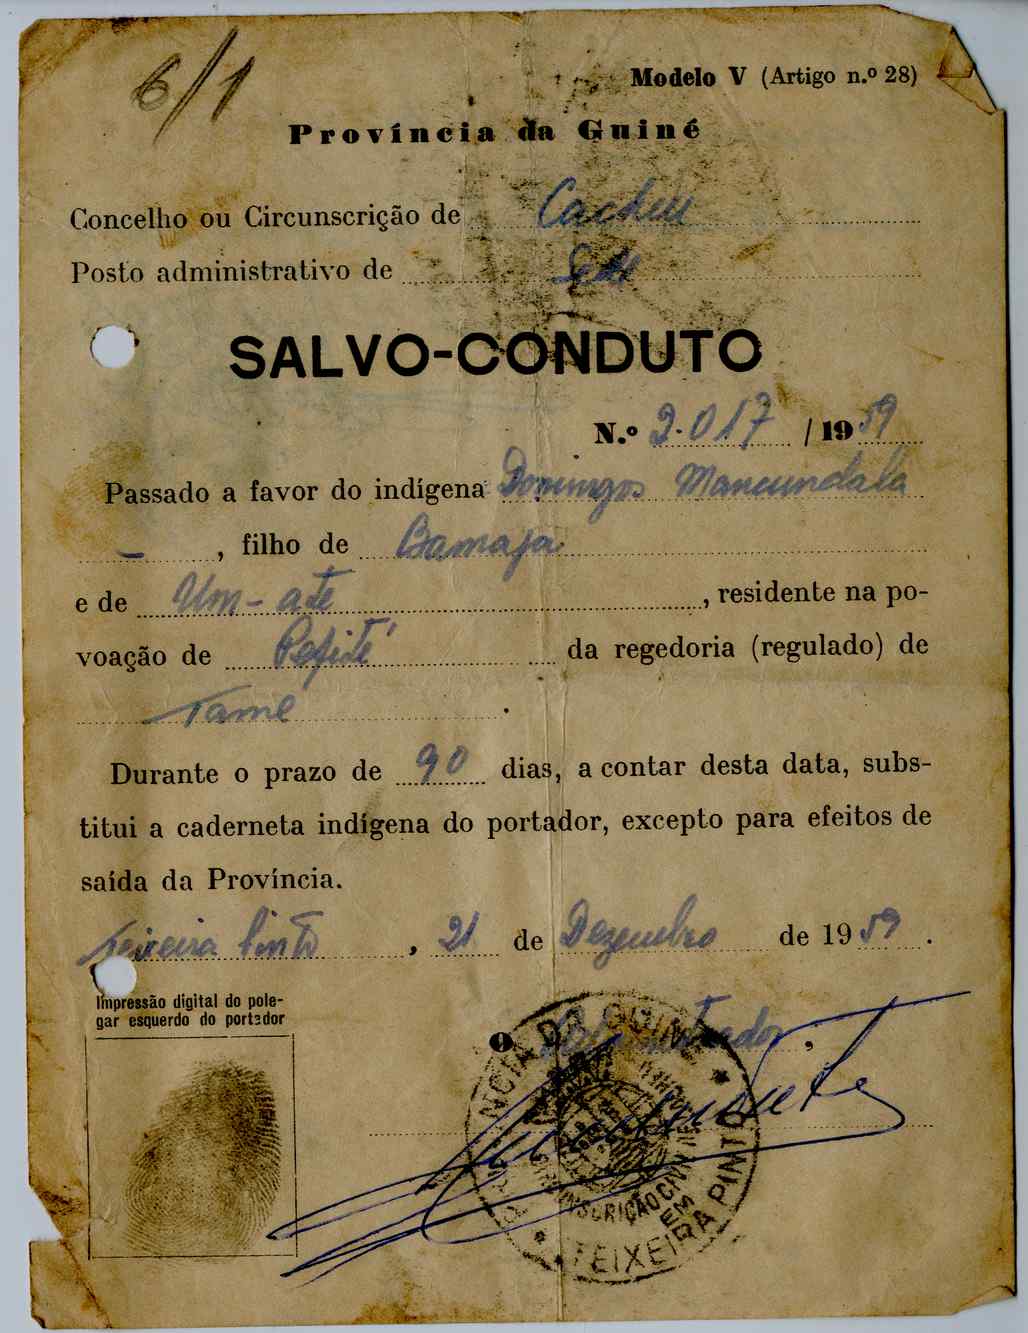 6/1
Modelo V (Artigo n.º 28)
Província da Guiné
Concelho ou Circunscrição de Cacheu
Posto administrativo de Sede
SALVO-CONDUTO
N.º 2.017 / 1959
Passado a favor do indígena Domingos Mancundala
–, filho de Bamaja
e de Um-até, residente na po-
voação de da regedoria (regulado) de
Tame.
Durante o prazo de 90 dias, a contar desta data, subs-
titui a caderneta indígena do portador, excepto para efeitos de
saída da Província.
Teixeira Pinto, 21 de Dezembro de 1959.
Impressão digital do pole-
gar esquerdo do portador
O Administrador,
PROVÍNCIA DA GUINÉ
CIRCUNSCRIÇÃO CIVIL
EM
TEIXEIRA PINTO